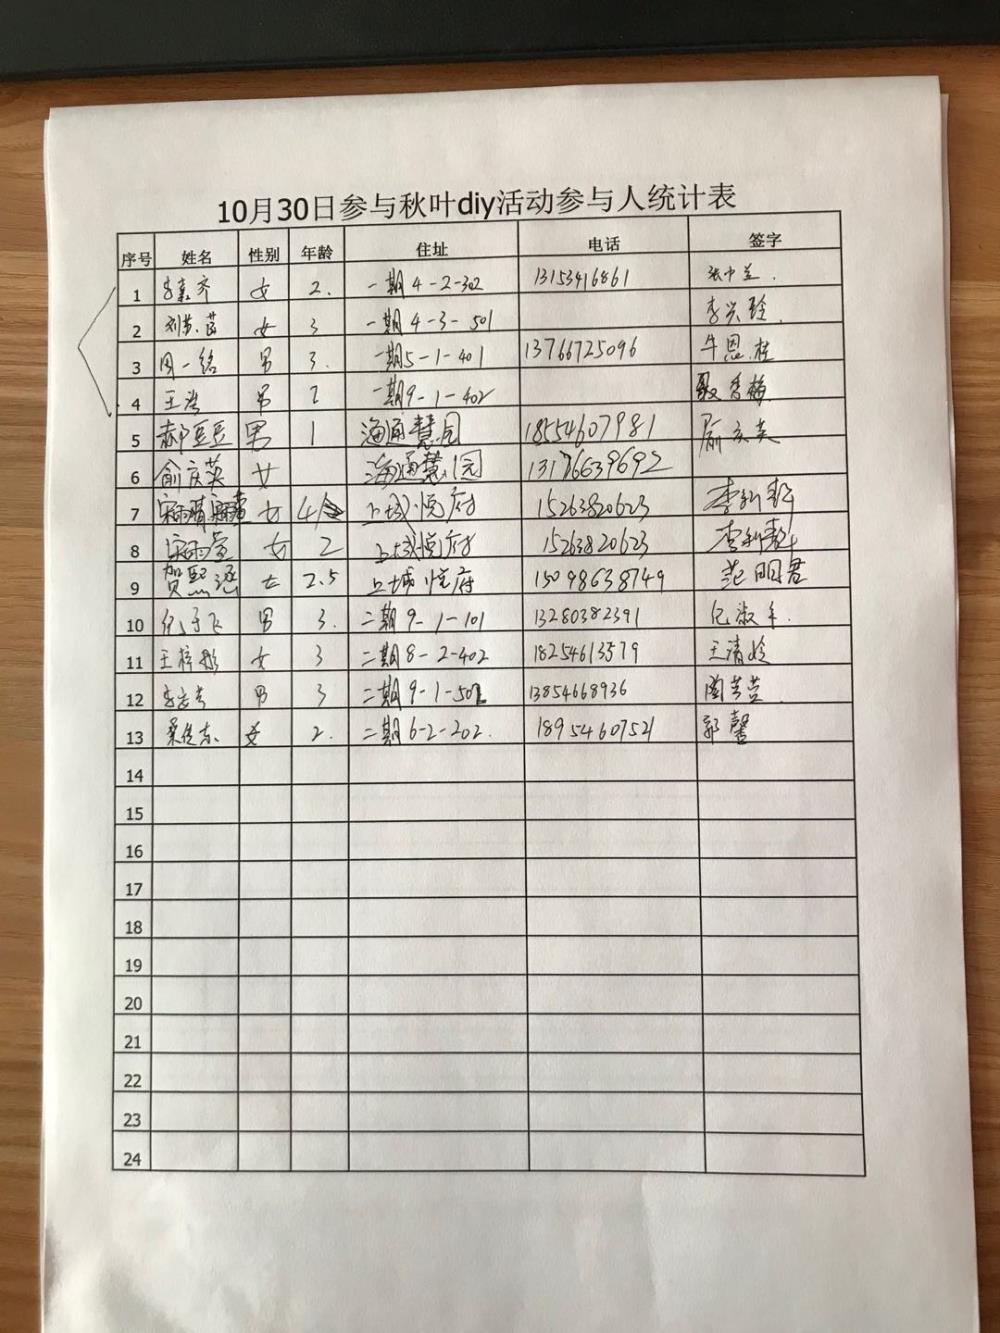 10月30日参与秋叶diy活动参与人统计表
序号 姓名 性别 年龄 住址 电话 签字
1 李嘉齐 女 2. 一期4-2-302 13153416861 张中兰.
2 女 3 一期4-3-501 李兴玲.
3 周一铭 男 3. 一期5-1-401 13766725096 牛恩桂
4 王浩 男 2 一期9-1-402 聂秀梅
5 郝豆豆 男 1 海通慧园 18554607981 俞庆英
6 俞庆英 女 海通慧园 13176639692
7 女 4 上城悦府 15263820623
8 宋雨萱 女 2 上城悦府 15263820623
9 贺熙涵 女 2.5 上城悦府 15098638749 范明君
10 纪子飞 男 3. 二期9-1-101 13280382391 纪淑
11 王梓彤 女 3 二期8-2-402 18254613579 王清
12 男 3 二期9-1-502 13854668936
13 女 2. 二期6-2-202. 18954607521 郭馨
14
15
16
17
18
19
20
21
22
23
24